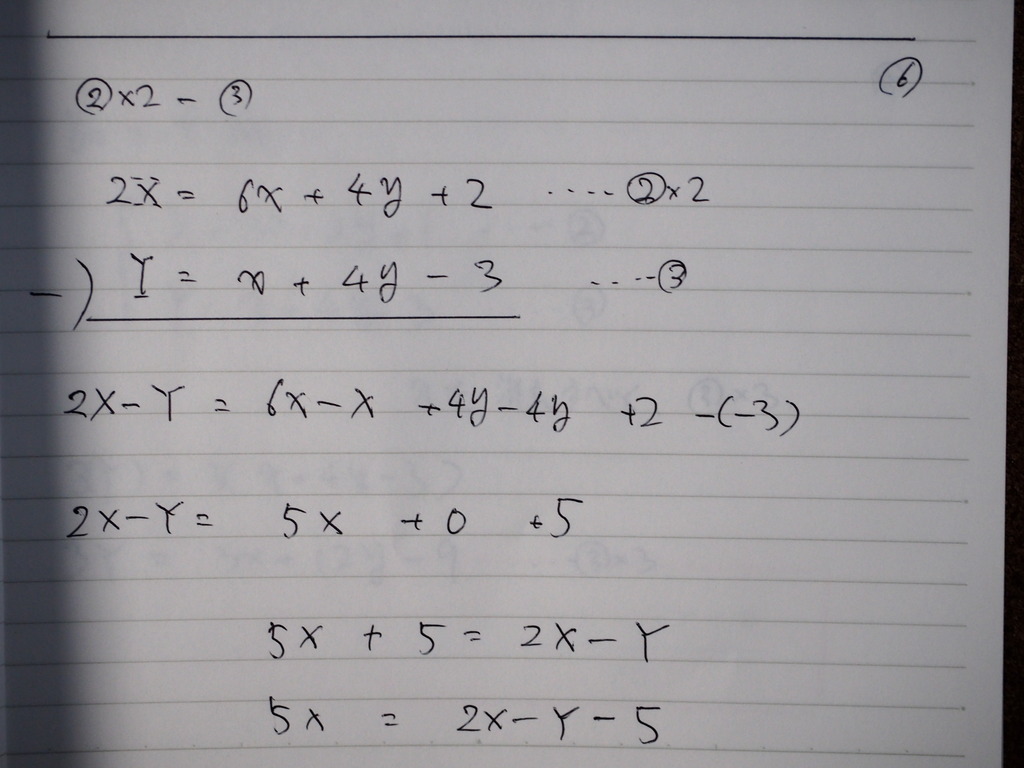 ⑥
②×2 - ③
2X = 6x + 4y + 2 ····· ②×2
-) Y = x + 4y - 3 ····· ③
2X - Y = 6x - x + 4y - 4y + 2 - (-3)
2X - Y = 5x + 0 + 5
5x + 5 = 2X - Y
5x = 2X - Y - 5